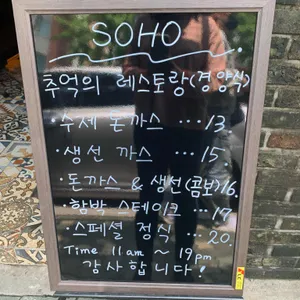 SOHO
추억의 레스토랑(경양식)
·수제 돈까스 ···13.
·생선 까스 ···15.
·돈까스 & 생선(콤보)16.
·함박 스테이크 ···17.
·스페셜 정식 ···20.
Time 11am ~ 19pm
감사합니다!